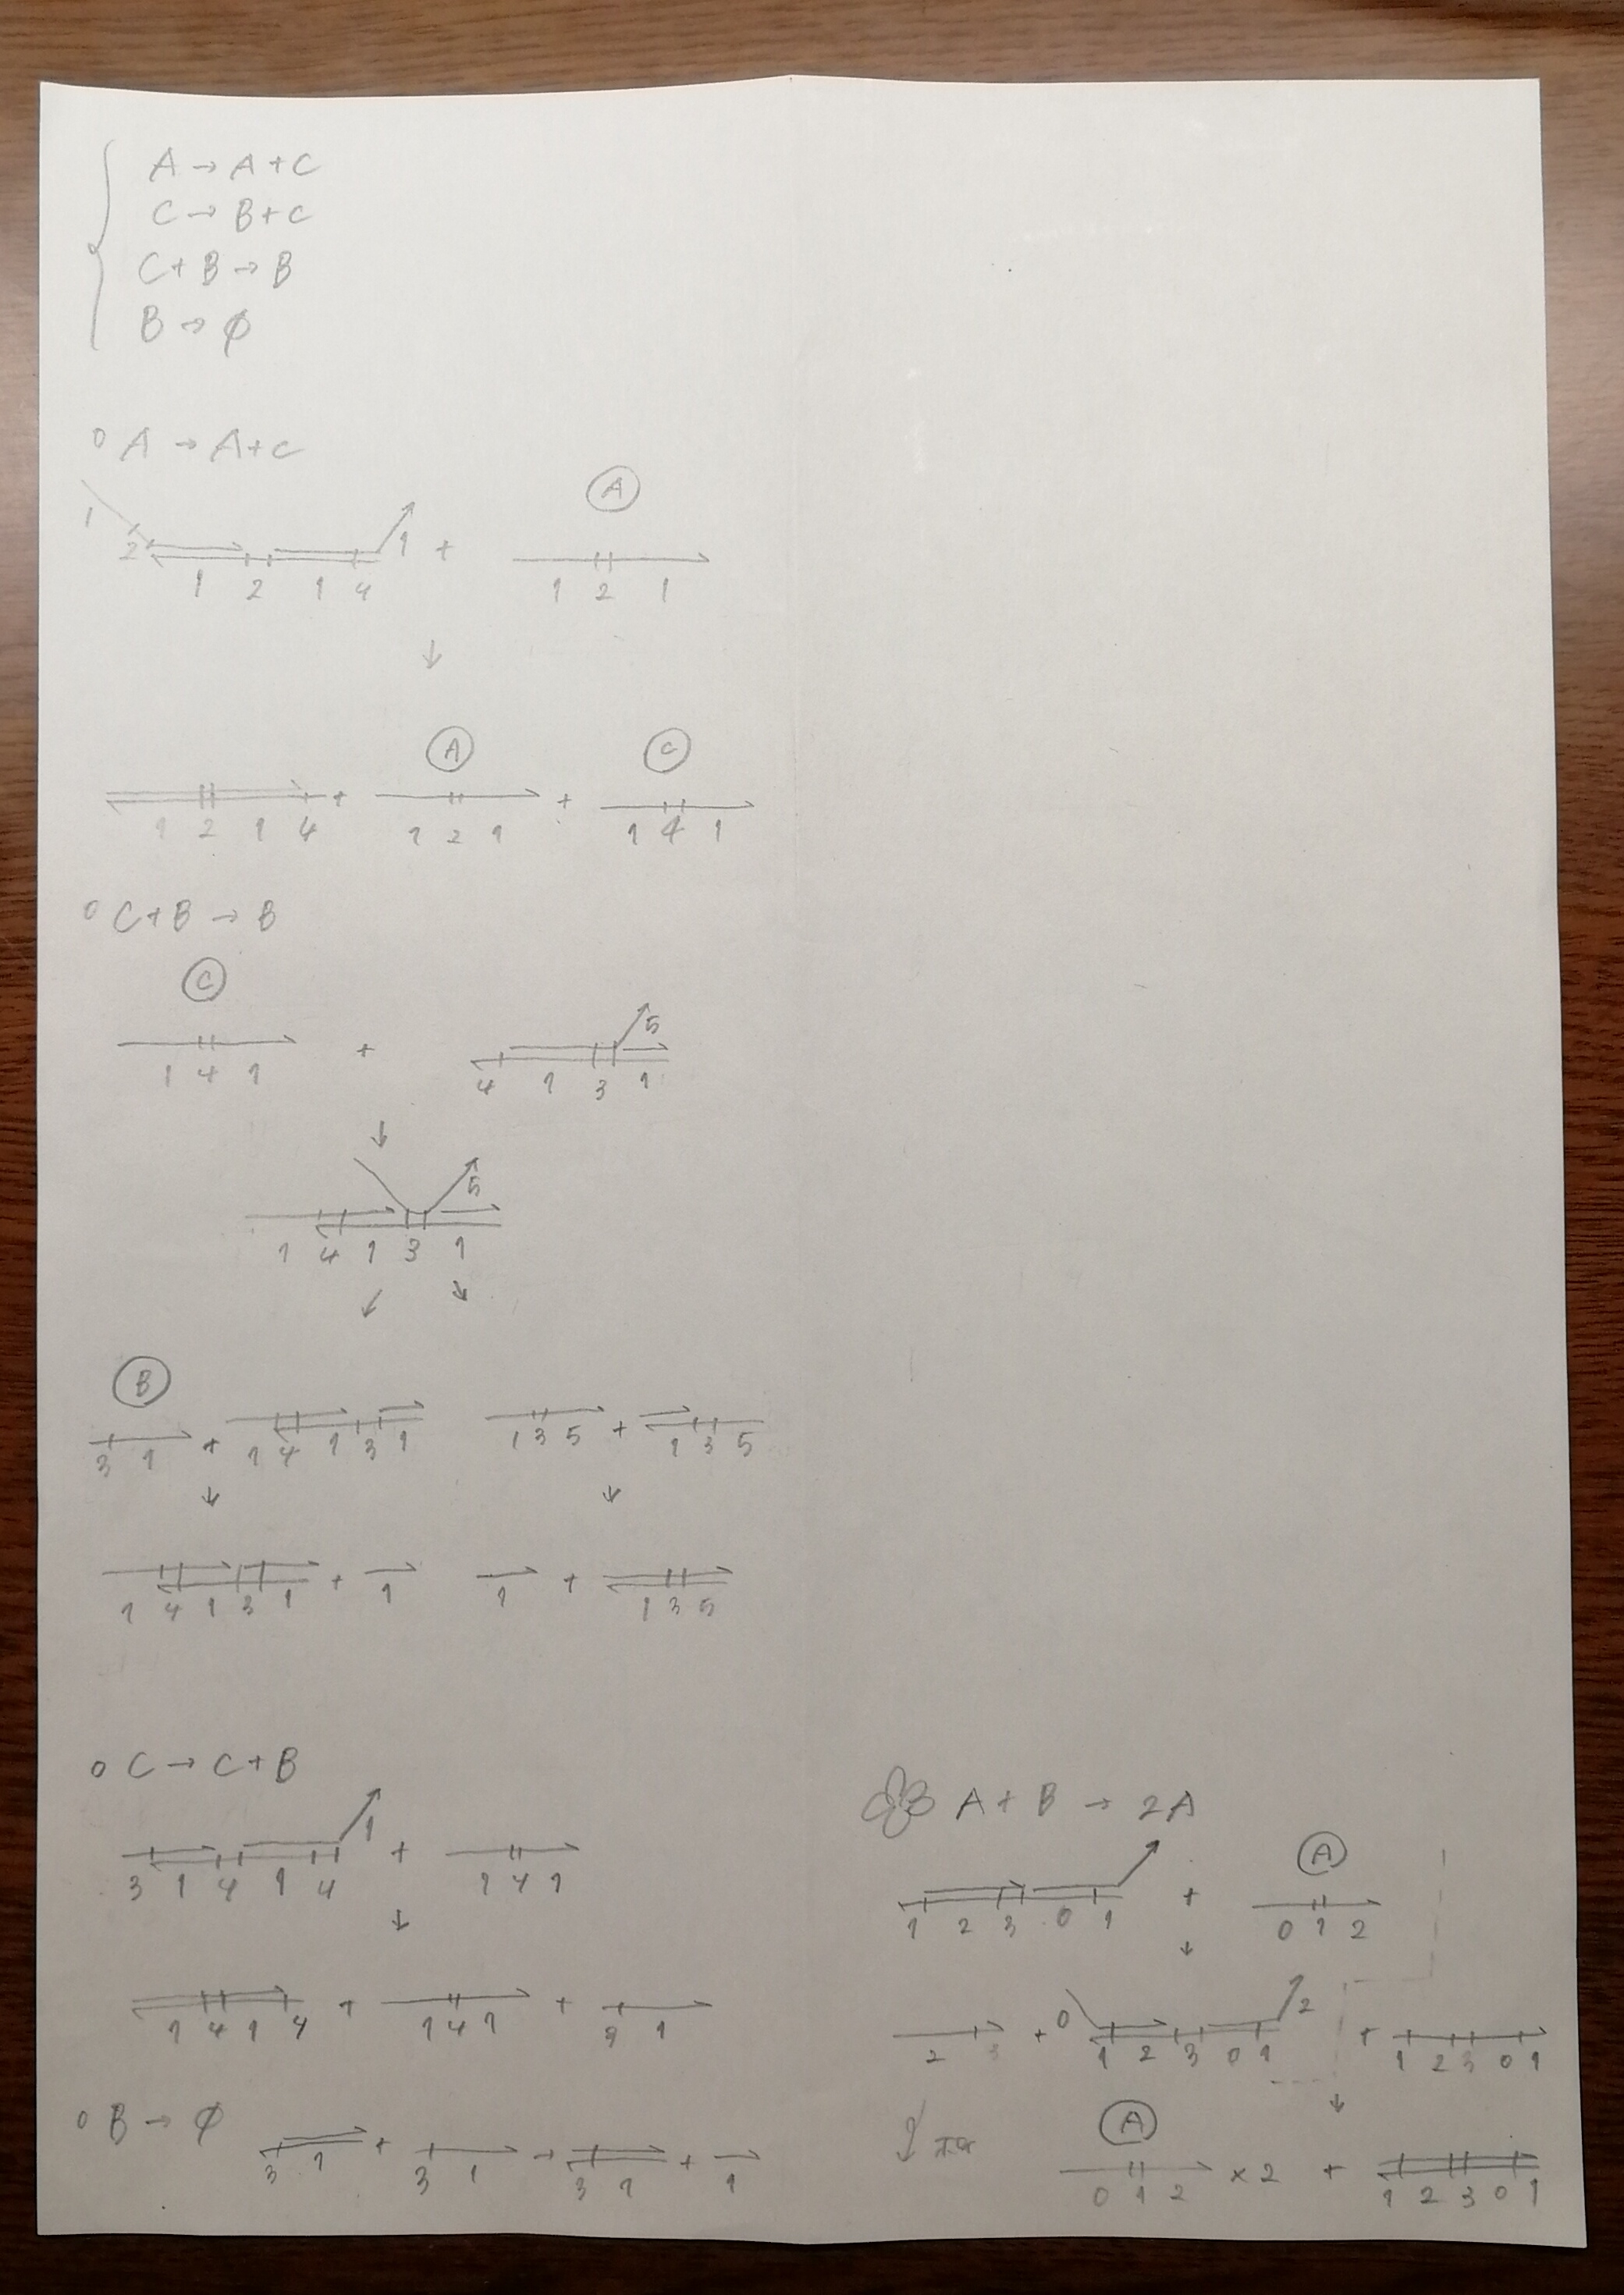 A → A + C
C → B + C
C + B → B
B → ∅
○ A → A + C
A
1 2 1 2 1 4 1 + 1 2 1
↓
A C
1 2 1 4 + 1 2 1 + 1 4 1
○ C + B → B
C
1 4 1 + 4 1 3 1 5
↓
5
1 4 1 3 1
↙ ↘
B
3 1 + 1 4 1 3 1 1 3 5 + 1 3 5
↓ ↓
1 4 1 3 1 + 1 1 + 1 3 5
○ C → C + B
3 1 4 1 4 1 + 1 4 1
↓
1 4 1 4 + 1 4 1 + 1
○ B → ∅
3 1 + 3 1 → 3 1 + 1
A + B → 2A
A
1 2 3 0 1 + 0 1 2
↓
2 3 + 0 1 2 3 0 1 2 + 1 2 3 0 1
↓
A
0 1 2 × 2 + 1 2 3 0 1